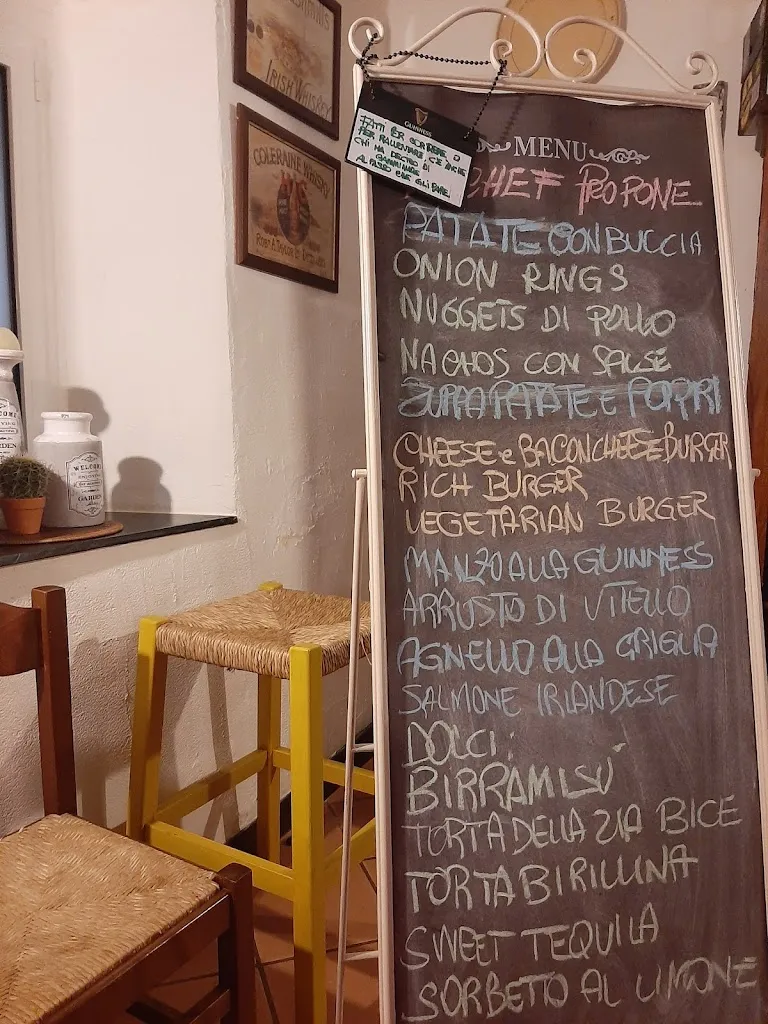 IRISH WHISKEY
COLERAINE WHISKY
GUINNESS
CHI HA DECISO DI
CAMMINARE
AL PASSO CHE GLI PARE.
MENU
CHEF PROPONE
PATATE CON BUCCIA
ONION RINGS
NUGGETS DI POLLO
NACHOS CON SALSE
ZUPPA PATATE E PORRI
CHEESE e BACON CHEESE BURGER
RICH BURGER
VEGETARIAN BURGER
MANZO ALLA GUINNESS
ARRUSTO DI VITELLO
AGNELLO ALLA GRIGLIA
SALMONE IRLANDESE
DOLCI:
BIRRAMISÙ
TORTA DELLA ZIA BICE
TORTA BIRILLINA
SWEET TEQUILA
SORBETTO AL LIMONE
WELCOME
GARDEN